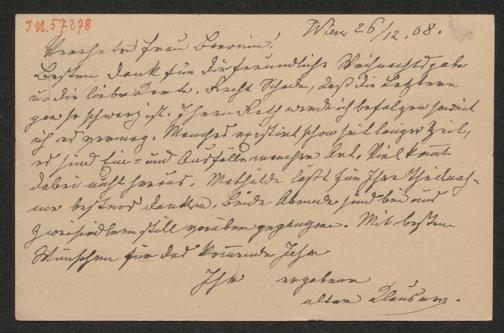 J.N. 57278
Wien 26/12. 08.
Verehrte Frau Baronin!
Besten Dank für die freundliche Weihnachtsgabe
und die liebe Karte. Recht Schade, daß die Letztern
gar so schwarz ist. Ihren Rath werde ich befolgen soweit
ich es vermag. Manches existirt schon seit langer Zeit,
es sind Ein- und Ausfälle mancher Art. Viel kommt
dabei nicht heraus. Mathilde läßt für Ihre Theilnah-
me bestens danken. Beide Abende sind bei uns
Zweisiedlern still vorüber gegangen. Mit besten
Wünschen für das kommende Jahr
Ihr ergebener
alter